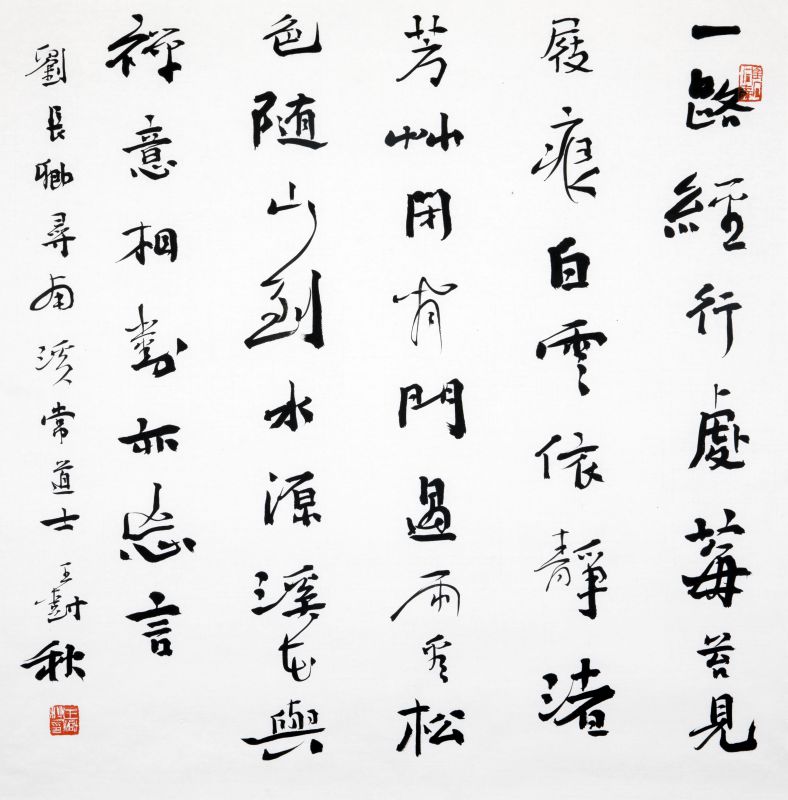 一路經行處莓苔見
屐痕白雲依靜渚
芳艸閉閒門過雨看松
色随山到水源溪花與
禪意相對亦忘言
劉長卿尋南溪常道士 王秋